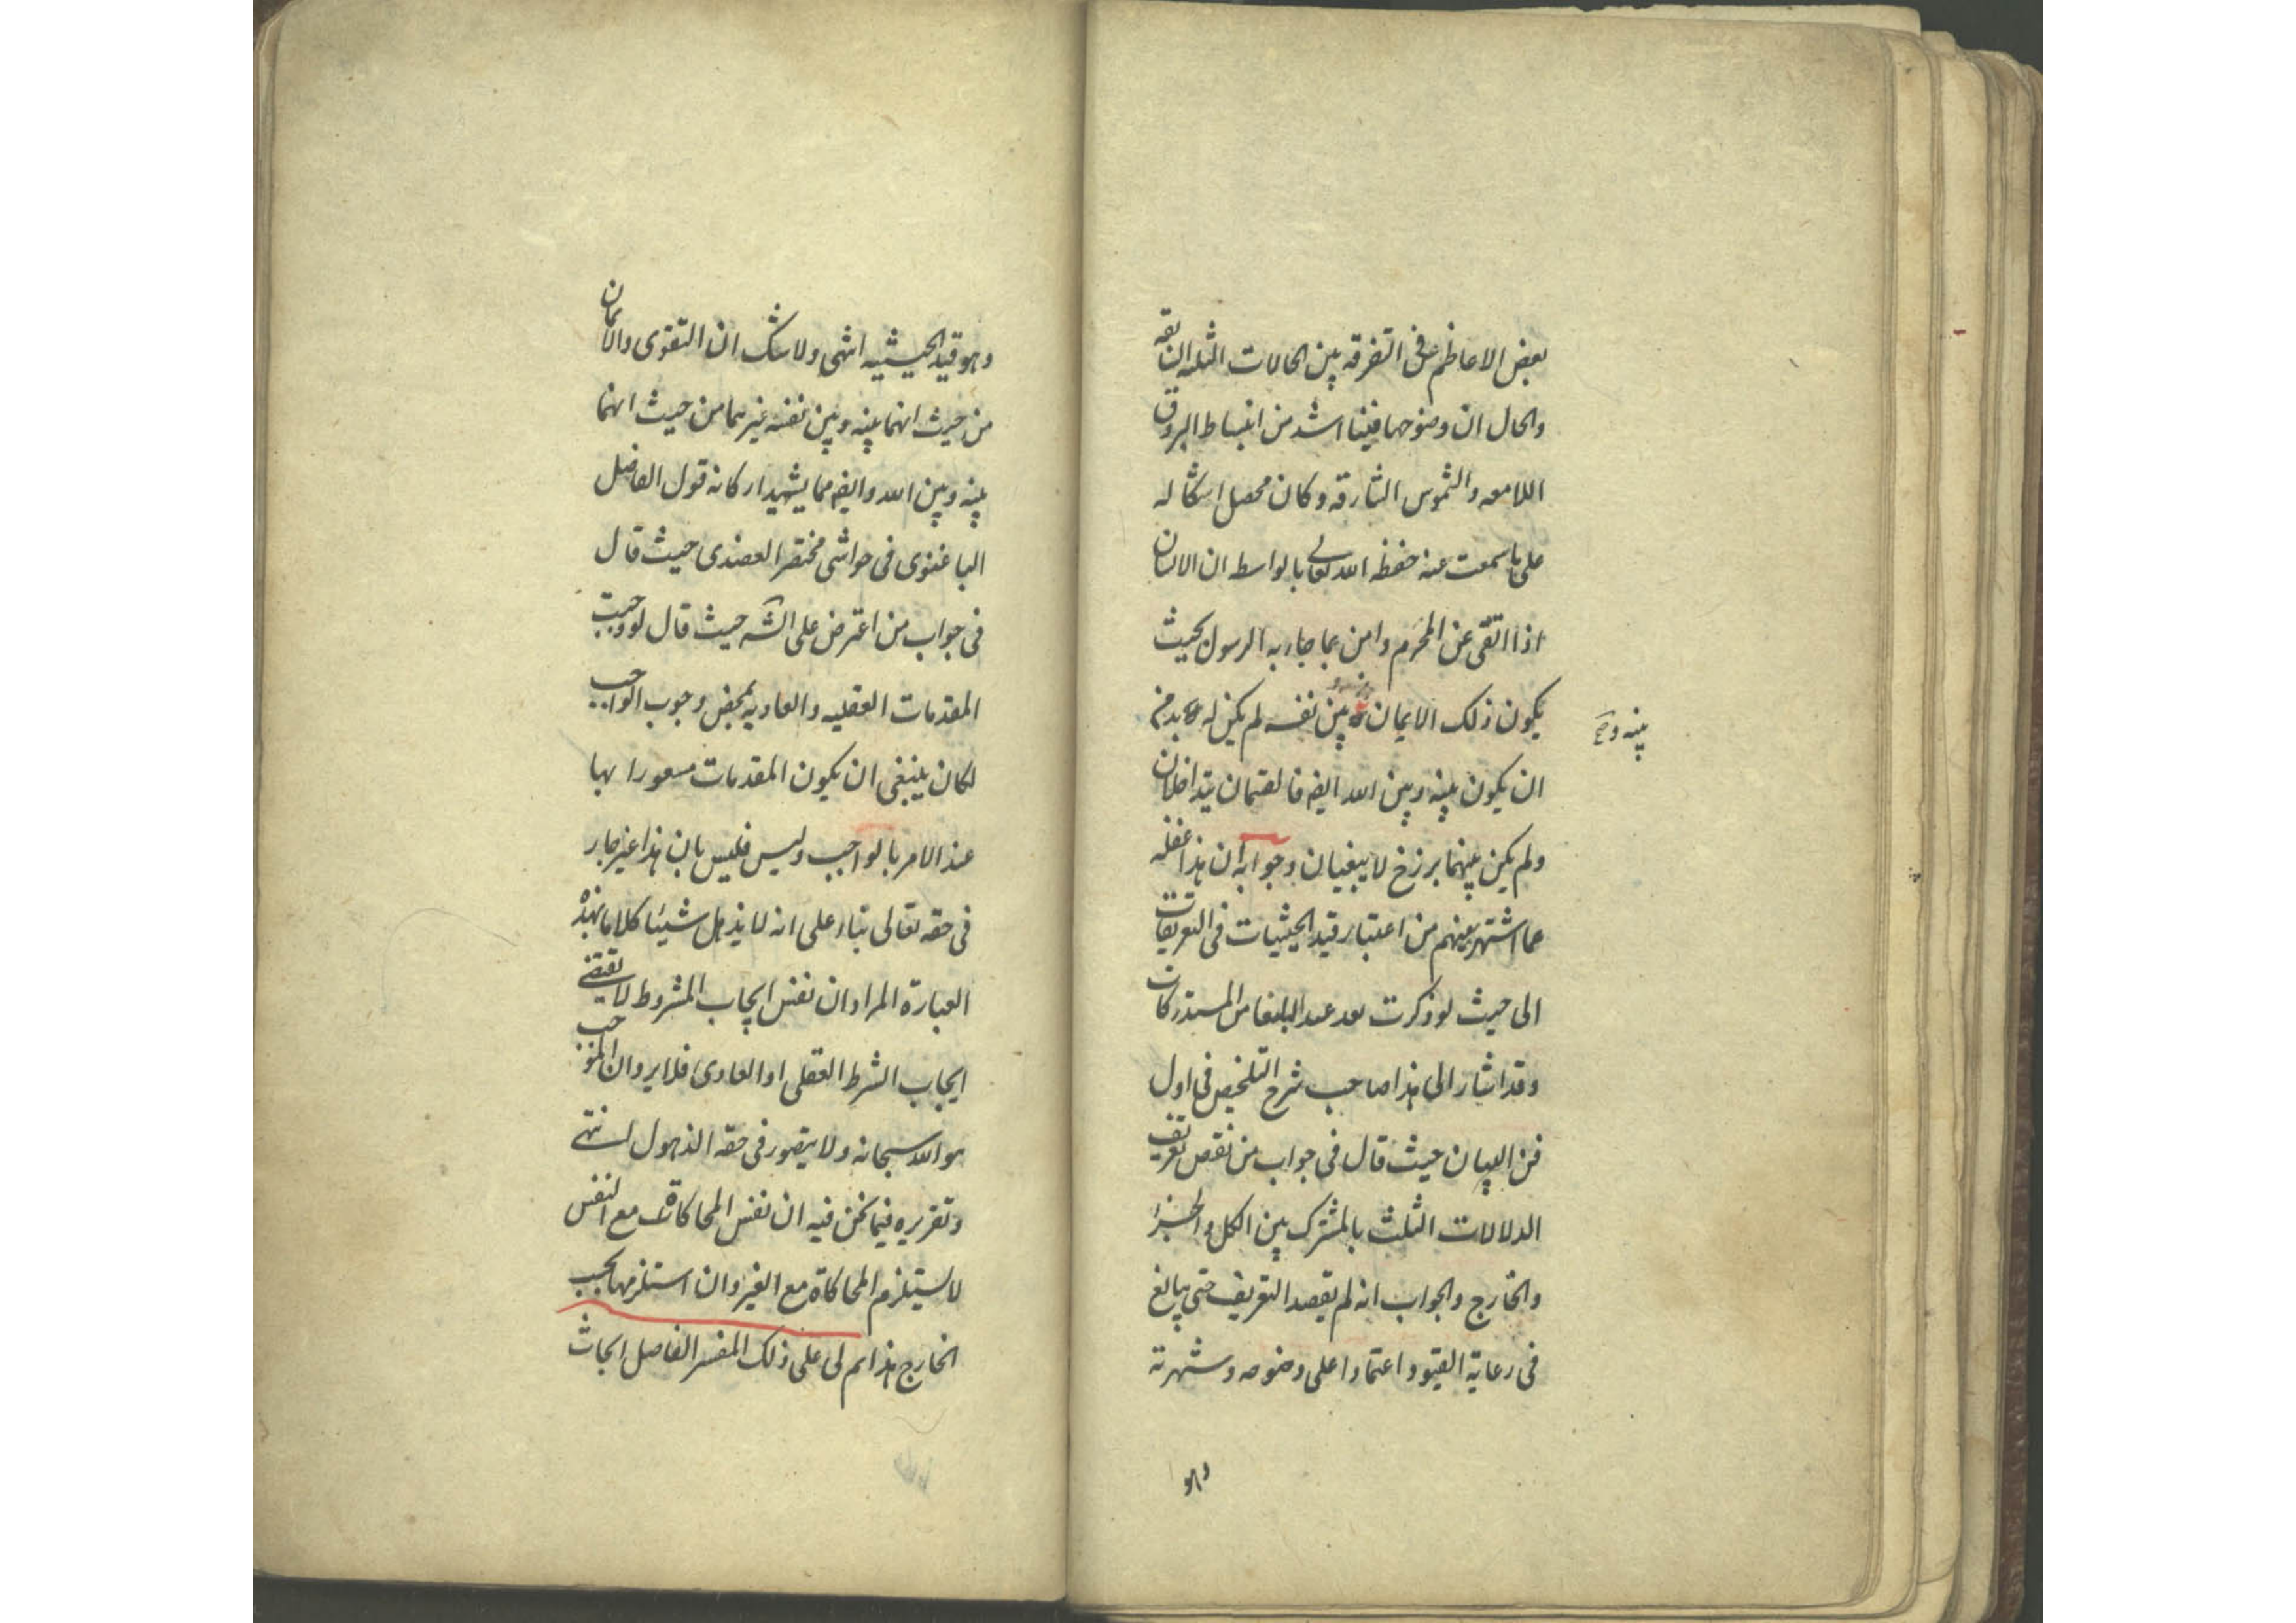 بعض الاعاظم عن فى التفرقه بين الحالات الثلثه السابقه
والحال ان وضوحها فينا اشد من انبساط البروق
اللامعه والشموس الشارقه وكان محصل اشكاله
على ما سمعت عنه حفظه الله تعالى بالواسطه ان الانسان
اذا اتقى عن المحرم وامن بما جاء به الرسول بحيث
يكون ذلك الايمان بين نفسه لم يكن له بد من
بينه و صح
ان يكون بينه وبين الله ايضا فالقسمان يتداخلان
ولم يكن بينهما برزخ لا يبغيان وجوابه ان هذا غفله
عما اشتهر بينهم من اعتبار قيد الحيثيات فى التعريفات
الى حيث لو ذكرت تعد عند البلغا من المستدركات
وقد اشار الى هذا صاحب شرح التلخيص فى اول
فن البيان حيث قال فى جواب من نقض تعريف
الدلالات الثلث بالمشترك بين الكل والجزء
والخارج والجواب انه لم يقصد التعريف حتى يبالغ
فى رعاية القيود اعتمادا على وضوحه وشهرته
وهو
وهو قيد الحيثيه انتهى ولا شك ان التقوى والايمان
من حيث انهما بينه وبين نفسه غيرهما من حيث انهما
بينه وبين الله وايضا مما يشهد اركانه قول الفاضل
الباغنوى فى حواشى مختصر العضدى حيث قال
فى جواب من اعترض على الشه حيث قال لو وجبت
المقدمات العقليه والعاديه بمحض وجوب الواجب
لكان ينبغى ان يكون المقدمات مشعورا بها
عند الامر بالواجب وليس فليس بان هذا غير جار
فى حقه تعالى بناء على انه لا يذهل شيئا كلاما بهذه
العبارة المراد ان نفس ايجاب المشروط لا يقتضى
ايجاب الشرط العقلى او العادى فلا يرد ان الموجب
هو الله سبحانه ولا يتصور فى حقه الذهول انتهى
وتقريره فيما نحن فيه ان نفس المحاكاة مع النفس
لا يستلزم المحاكاة مع الغير وان استلزمها بحسب
الخارج هذا ثم لى على ذلك المفسر الفاضل ابحاث